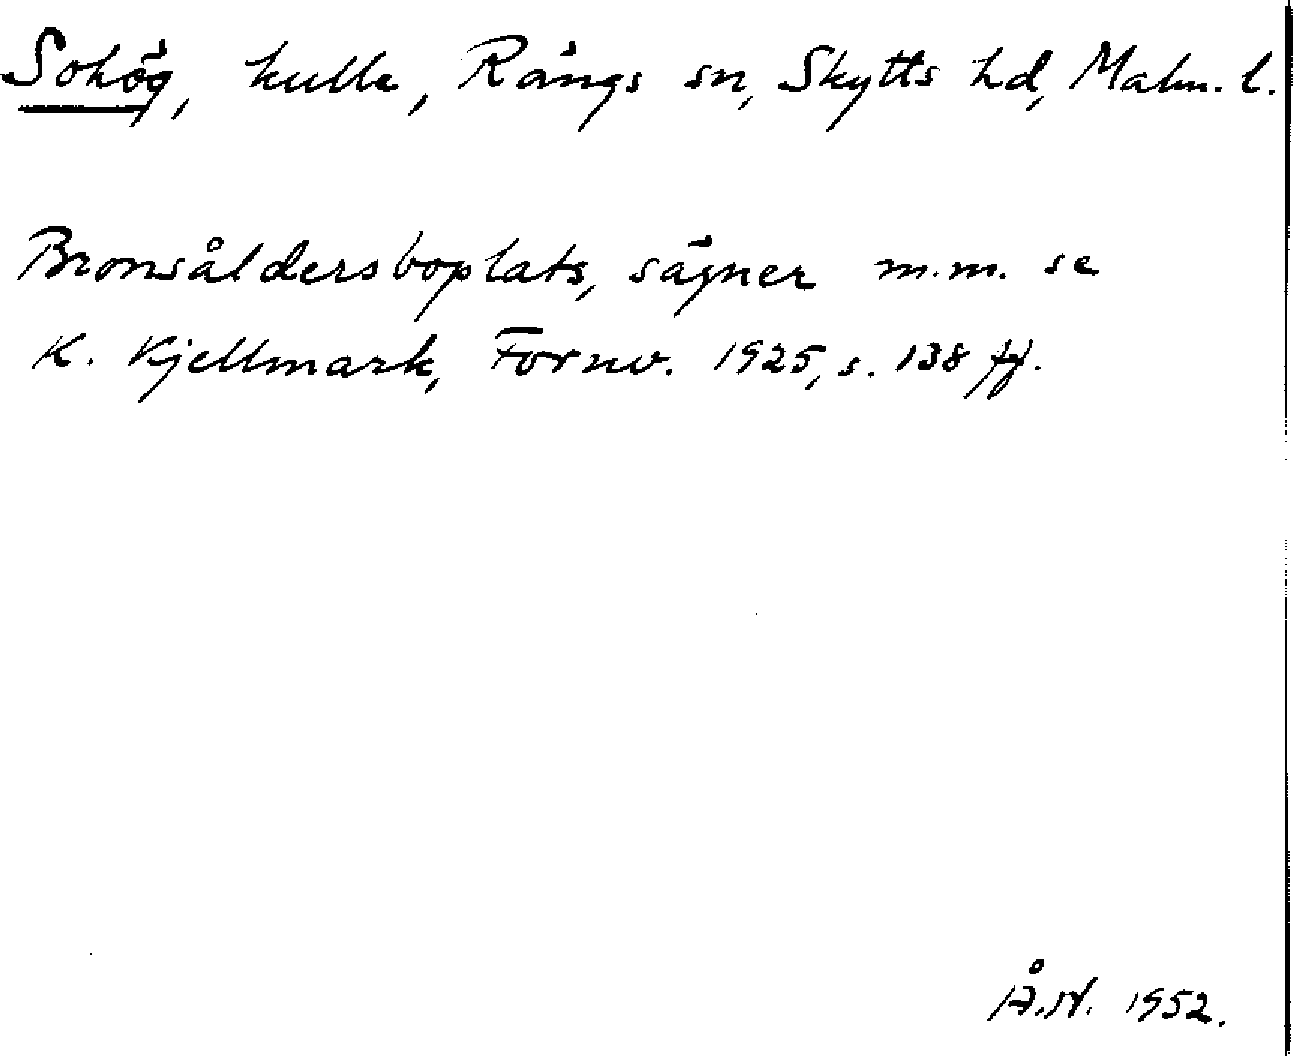 Sohög, kulle, Rängs sn, Skytts hd, Malm. l.
Bronsåldersboplats, sägner m.m. se
K. Kjellmark, Fornv. 1925, s. 138 ff.
Å.N. 1952.